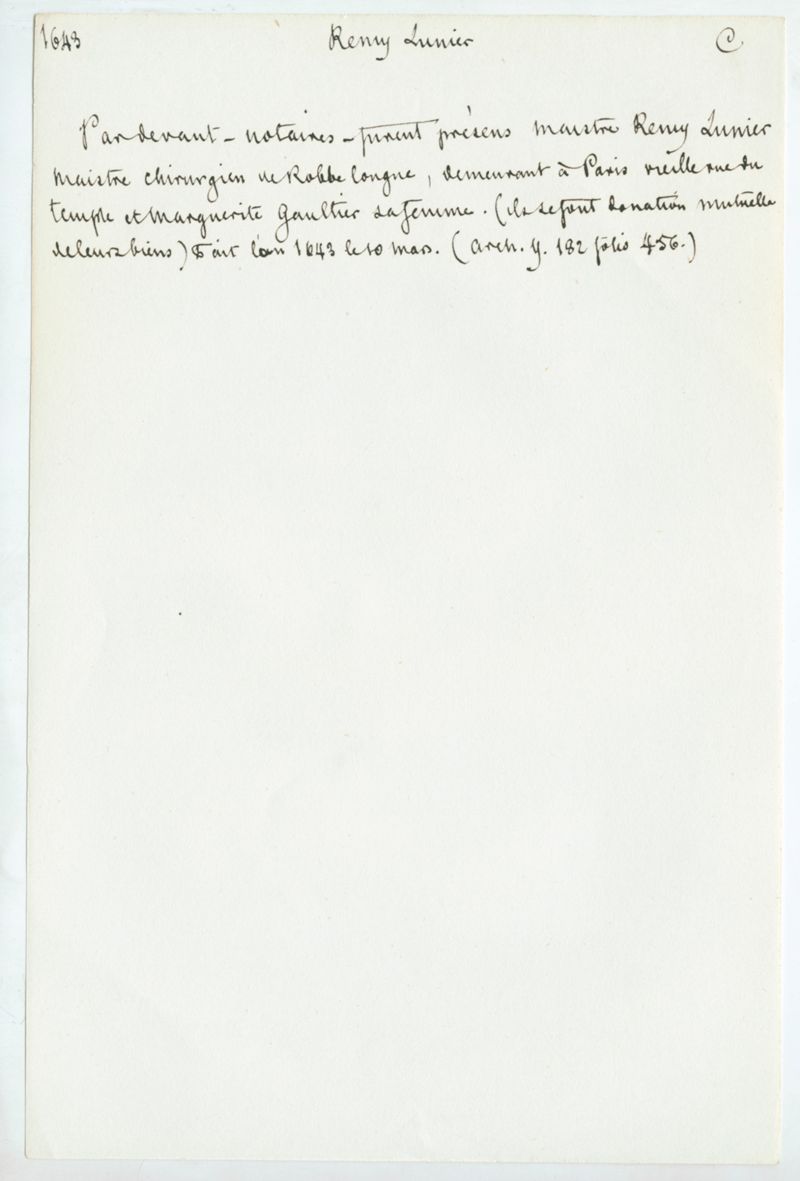 1643 Remy Lunier C
Par devant - notaires - furent présens maistre Remy Lunier
maistre chirurgien de Robbe longue, demeurant à Paris vieille rue du
temple et Marguerite Gaultier sa femme. (ils se font donation mutuelle
de leurs biens) Fait l'an 1643 le 10 mars. (Arch. Y. 182 folio 456.)